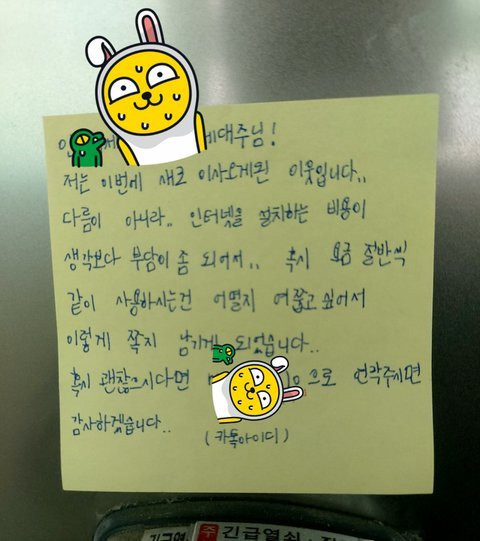 세대주님!
저는 이번에 새로 이사오게된 이웃입니다..
다름이 아니라.. 인터넷을 설치하는 비용이
생각보다 부담이 좀 되어서.. 혹시 요금 절반씩
같이 사용하시는건 어떨지 여쭙고 싶어서
이렇게 쪽지 남기게 되었습니다..
혹시 괜찮으시다면 으로 연락주시면
감사하겠습니다.. (카톡아이디)
긴급열쇠